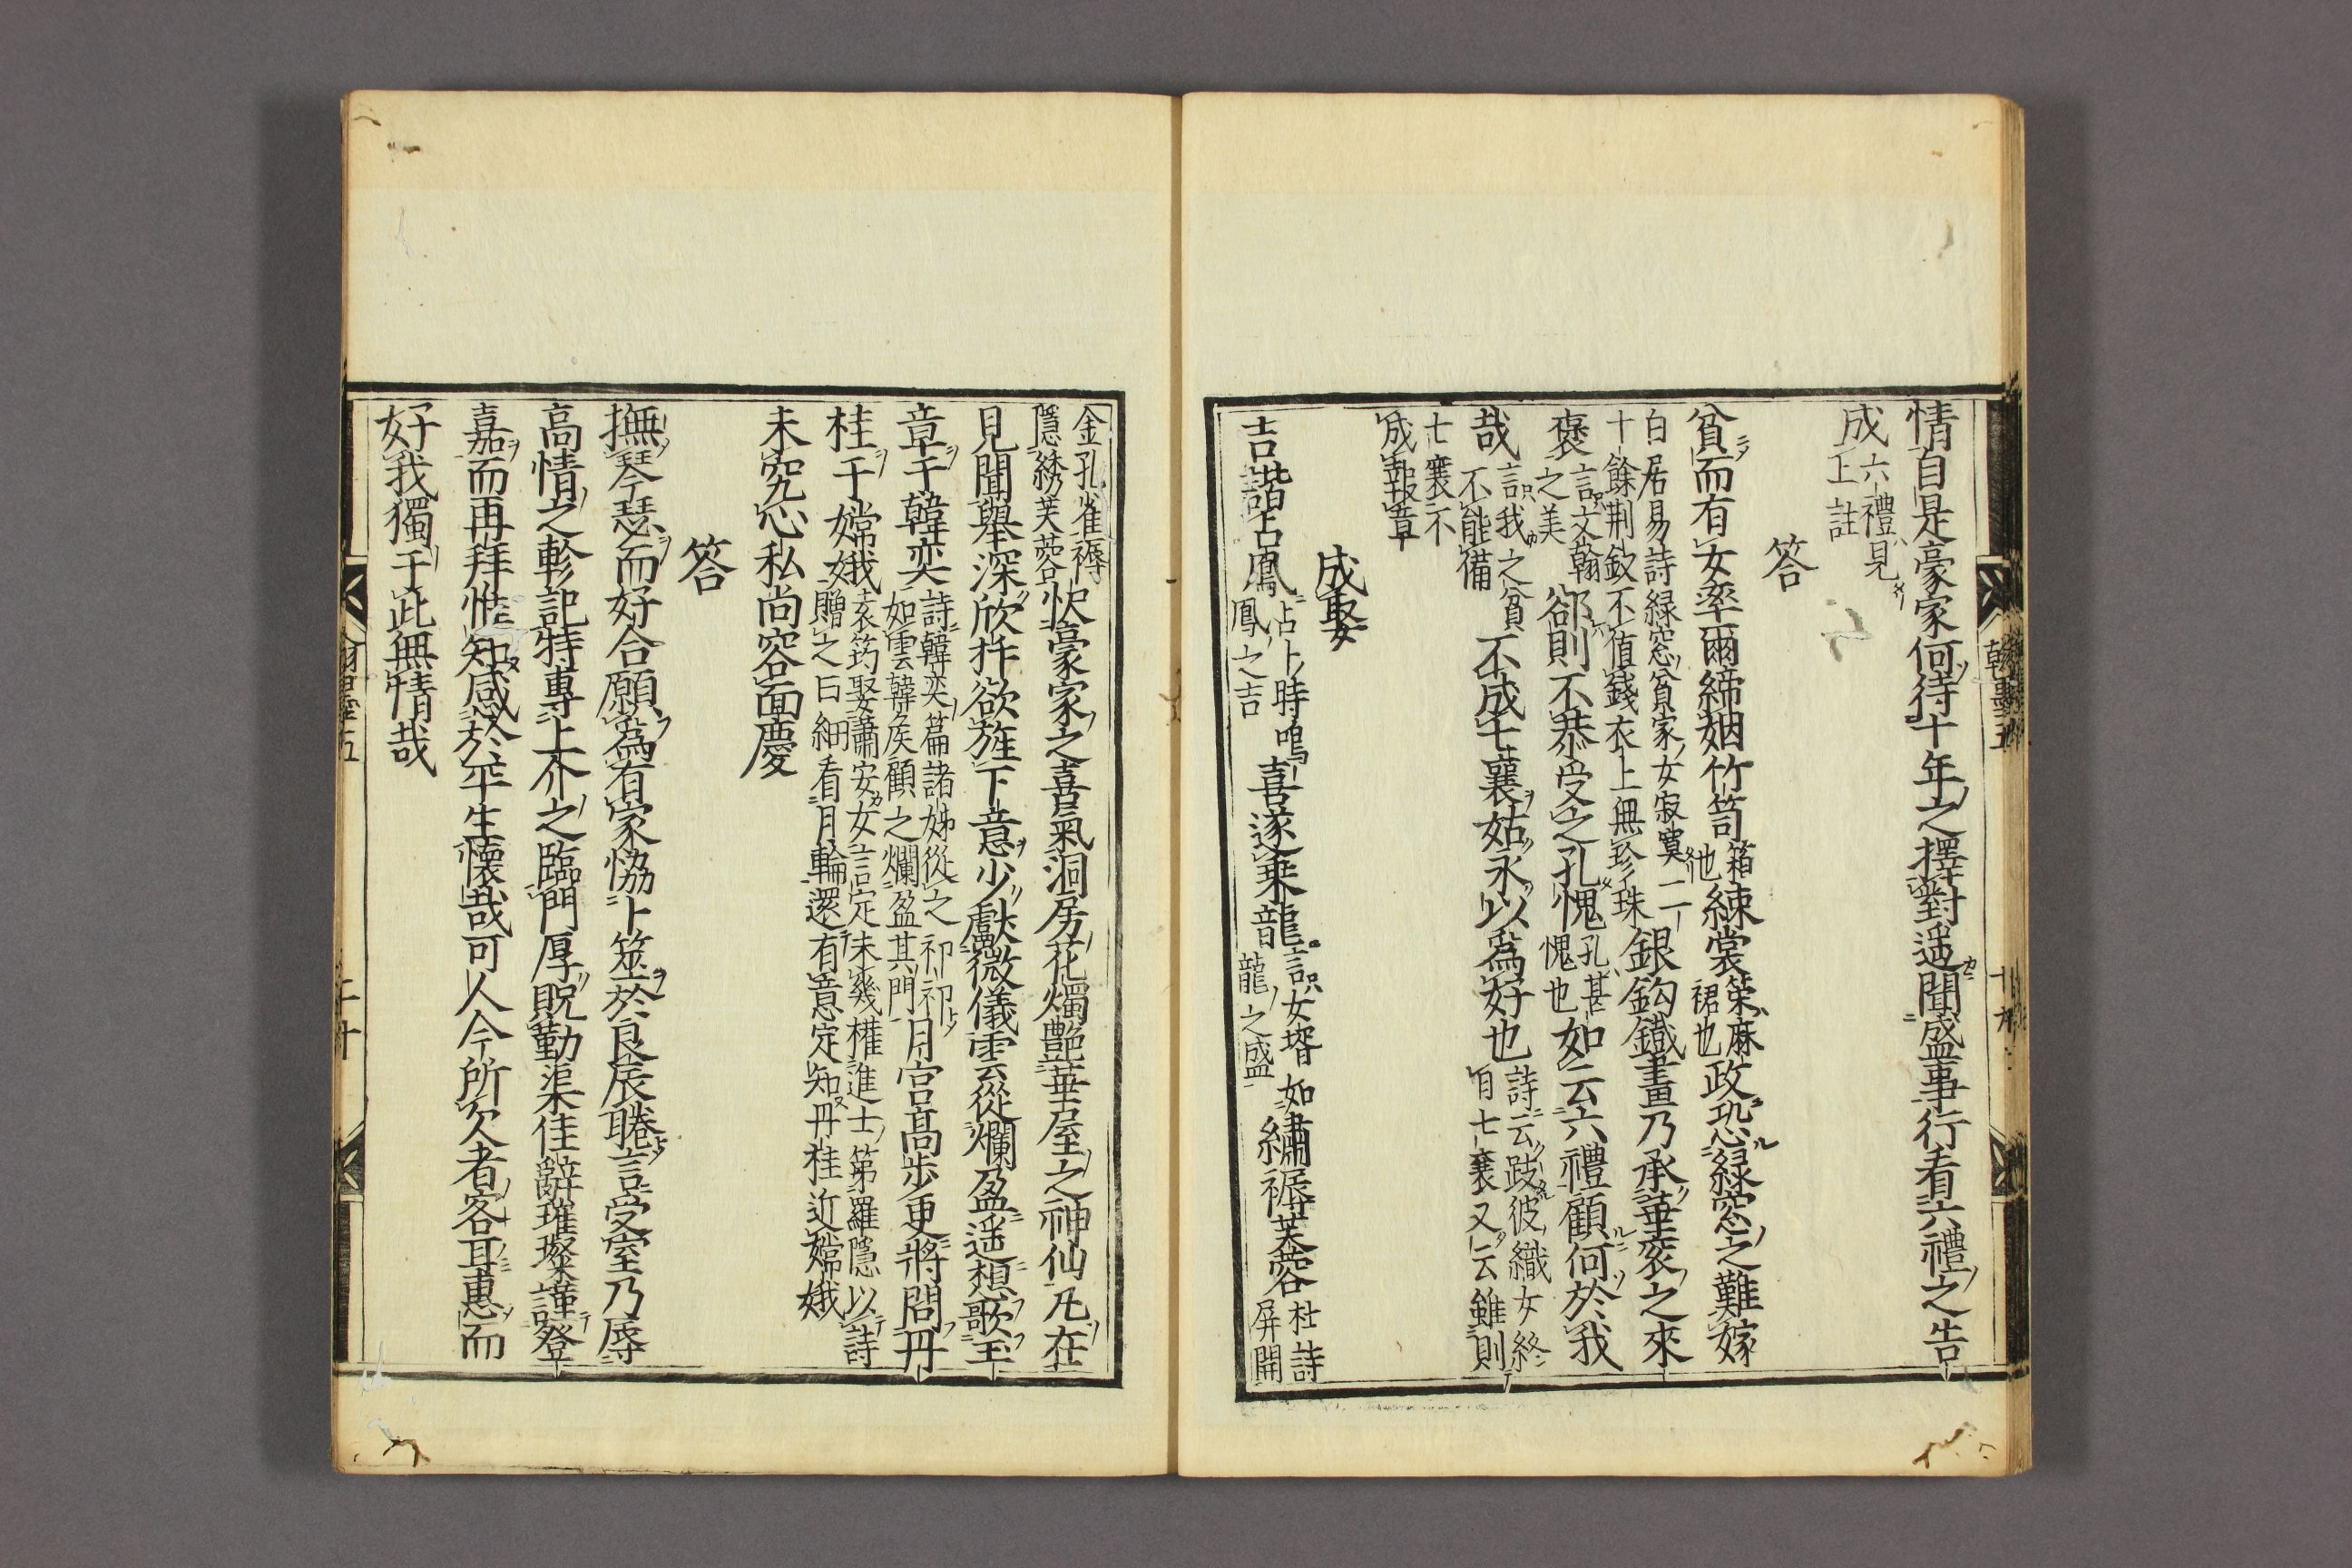 情自是豪家何待十年之擇對遥聞盛事行看六禮之告
成六禮見上註
答
貧而有女率爾締姻竹笥箱也練裳䇿麻裙也政恐緑窓之難嫁
白居易詩緑窓貧家女寂寞二十餘荆釵不値錢衣上無珍珠銀鈎鐡畫乃承華衮之來
褒言文翰之美郤則不恭受之孔愧孔甚愧也如云六禮顧何於我
哉言我之貧不能備不成七襄姑永以爲好也詩云跂彼織女終日七襄又云雖則
七襄不成報章
成娶
吉諧占鳳占卜時鳴鳳之吉喜遂乗龍言女壻如龍之盛繡褥芙蓉杜詩屏開
金孔雀褥隱綉芙蓉忻豪家之喜氣洞房花燭艶華屋之神仙凡在
見聞舉深欣抃欲旌下意少獻微儀雲從爛盈遥想歌玉
章于韓奕詩韓奕篇諸娣從之祁祁如雲韓侯顧之爛盈其門月宮高步更將問丹
桂于嫦娥袁筠娶蕭安女言定未幾擢進士第羅隱以詩贈之曰細看月輪還有意定知丹桂近嫦娥
未究心私尚容面慶
答
撫琴瑟而好合願爲有家恊卜筮於良辰睠言受室乃辱
高情之軫記特專上介之臨門厚貺勤渠佳辭璀璨謹登
嘉而再拜惟知感於平生懷哉可人今所欠者客耳惠而
好我獨于此無情哉
翰墨五
二十